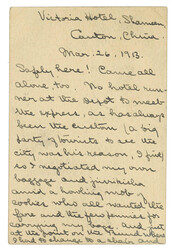 Victoria Hotel, Shameen,
Canton, China.
Mar. 26, 1913.
Safely here! Came all
alone, too. No hotel run-
ner at the depot to meet
the express, as has always
been the custom (a big
party of tourists to see the
city was his reason, I find)
so I negotiated my own
baggage and jinriksha
amid a howling mob of
coolies who all wanted the
fare and the few pennies for
carrying my bag, and just
at the point on the
I had to change to a chair